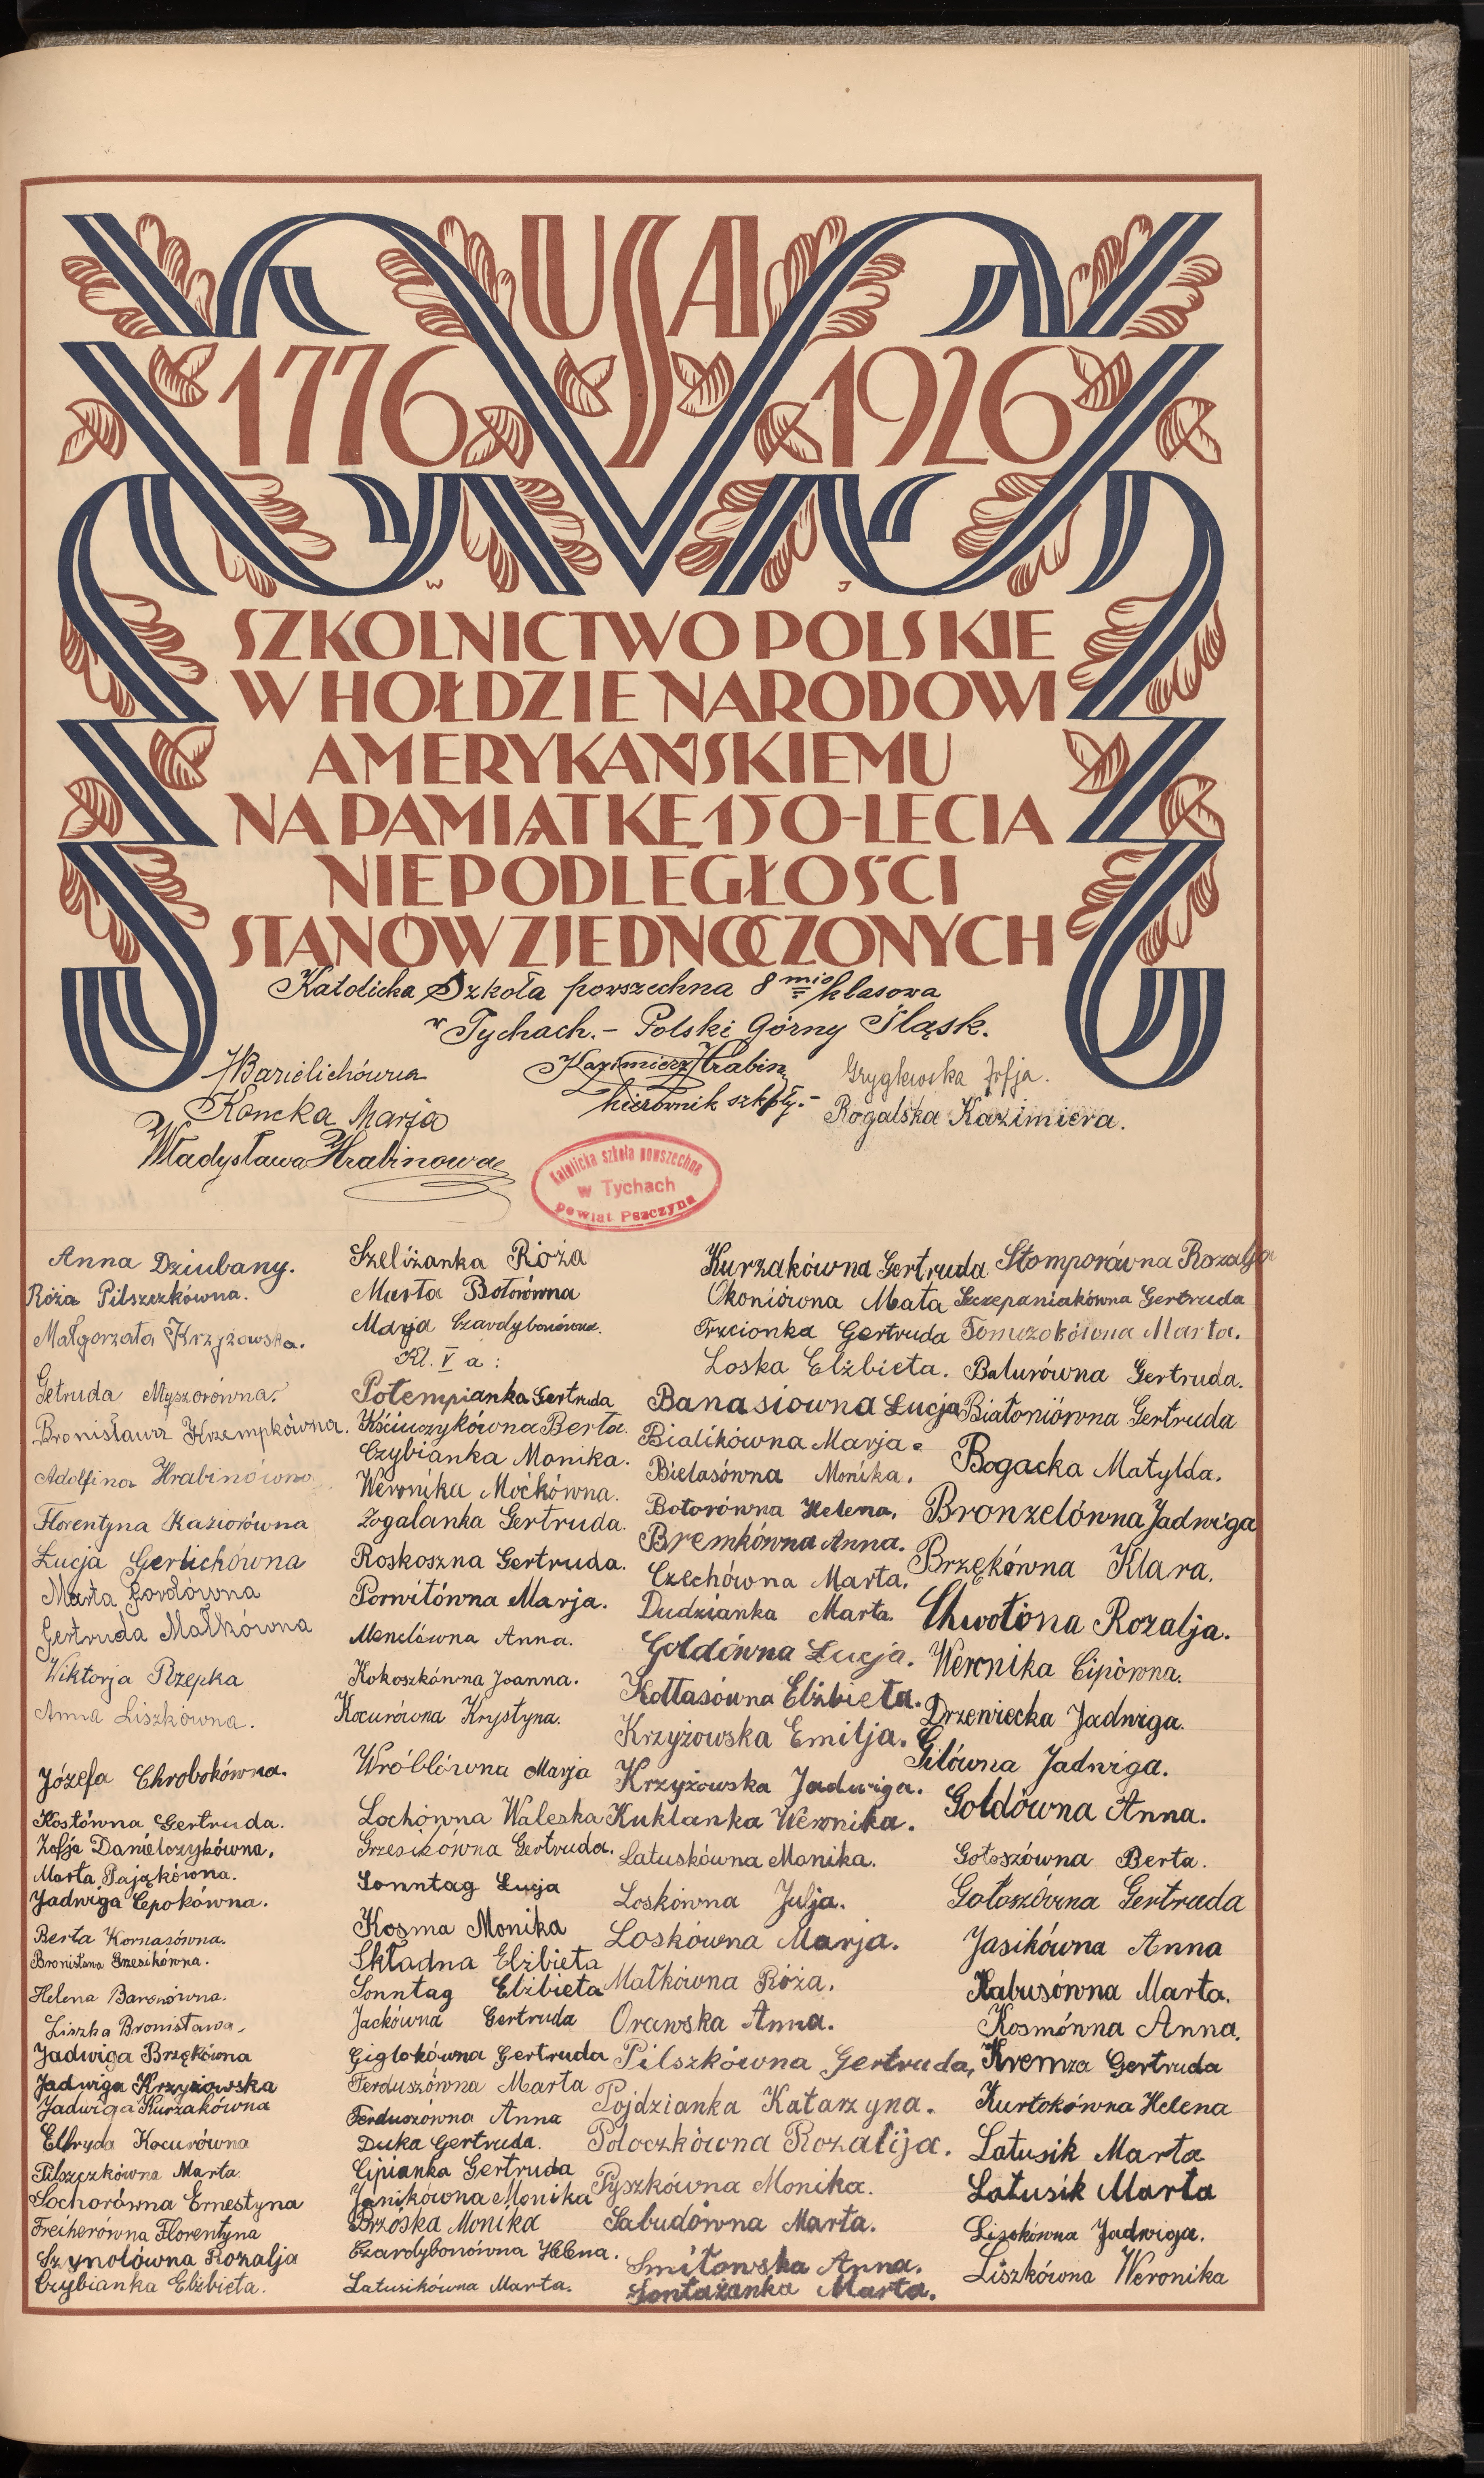 USA
1776 1926
W J
SZKOLNICTWO POLSKIE
W HOŁDZIE NARODOWI
AMERYKAŃSKIEMU
NA PAMIĄTKĘ 150-LECIA
NIEPODLEGŁOŚCI
STANÓW ZJEDNOCZONYCH
Katolicka Szkoła powszechna 8 mio klasowa
w Tychach. - Polski Górny Śląsk.
Kazimierz Hrabin
kierownik szkoły. -
Gryglewska Zofja.
Koncka Marja
Rogalska Kazimiera.
Władysława Hrabinowa
Katolicka szkoła powszechna
w Tychach
powiat Pszczyna
Anna Dziubany.
Róża Pilszczkówna.
Małgorzata Krzyżowska.
Getruda Myszorówna.
Bronisława Krzempkówna.
Adolfina Hrabinówna
Florentyna Kaziorówna
Łucja Gerlichówna
Marta Gordówna
Gertruda Małkówna
Wiktorja Rzepka
Anna Liszkówna.
Józefa Chrobokówna.
Kostówna Gertruda.
Zofja Danielczykówna.
Marta Pająkówna.
Jadwiga Cepokówna.
Berta Kornasówna.
Bronisława Grzesikówna.
Helena Baronówna.
Liszka Bronisława.
Jadwiga Brzękówna
Jadwiga Krzyżowska
Jadwiga Kurzakówna
Elfryda Kocurówna
Pilszczkówna Marta
Sochorówna Ernestyna
Freiherówna Florentyna
Szynolówna Rozalja
Czybianka Elżbieta.
Szeliżanka Róża
Marta Botorówna
Marja Czardybonówna.
Kl. V a:
Potempianka Gertruda
Kściuczykówna Berta.
Czybianka Monika.
Weronika Moćkówna.
Zogalanka Gertruda.
Roskoszna Gertruda.
Porwitówna Marja.
Menclówna Anna.
Kokoszkówna Joanna.
Kocurówna Krystyna.
Wróblówna Marja
Lochówna Waleska
Grzesikówna Gertruda.
Sonntag Łucja
Kosma Monika
Składna Elżbieta
Sonntag Elżbieta
Jackówna Gertruda
Giglokówna Gertruda
Ferduszówna Marta
Ferduszówna Anna
Duka Gertruda.
Cipianka Gertruda
Janikówna Monika
Brzoska Monika
Czardybonówna Helena.
Latusikówna Marta.
Kurzakówna Gertruda
Okoniówna Mata
Trzcionka Gertruda
Loska Elżbieta.
Banasiówna Łucja
Bialikówna Marja.
Bielasówna Monika.
Botorówna Helena.
Bremkówna Anna.
Czechówna Marta.
Dudzianka Marta.
Goldówna Łucja.
Kottasówna Elżbieta.
Krzyżowska Emilja.
Krzyżowska Jadwiga.
Kuklanka Weronika.
Latuskówna Monika.
Loskówna Julja.
Loskówna Marja.
Małkówna Róża.
Orawska Anna.
Pilszkówna Gertruda,
Pojdzianka Katarzyna.
Potoczkówna Rozalija.
Pyszkówna Monika.
Sabudówna Marta.
Smiłowska Anna.
Sontażanka Marta.
Stomporówna Rozalja
Szczepaniakówna Gertruda
Tomczokówna Marta.
Balurówna Gertruda.
Białoniówna Gertruda
Bogacka Matylda.
Bronzelówna Jadwiga
Brzękówna Klara.
Chwotiona Rozalja.
Weronika Cipówna.
Drzewiecka Jadwiga.
Gilówna Jadwiga.
Goldówna Anna.
Gołoszówna Berta.
Gołoszówna Gertruda
Jasikówna Anna
Kabusówna Marta.
Kosmówna Anna.
Kremza Gertruda
Kurtokówna Helena
Latusik Marta
Latusik Marta
Lisokówna Jadwiga.
Liszkówna Weronika